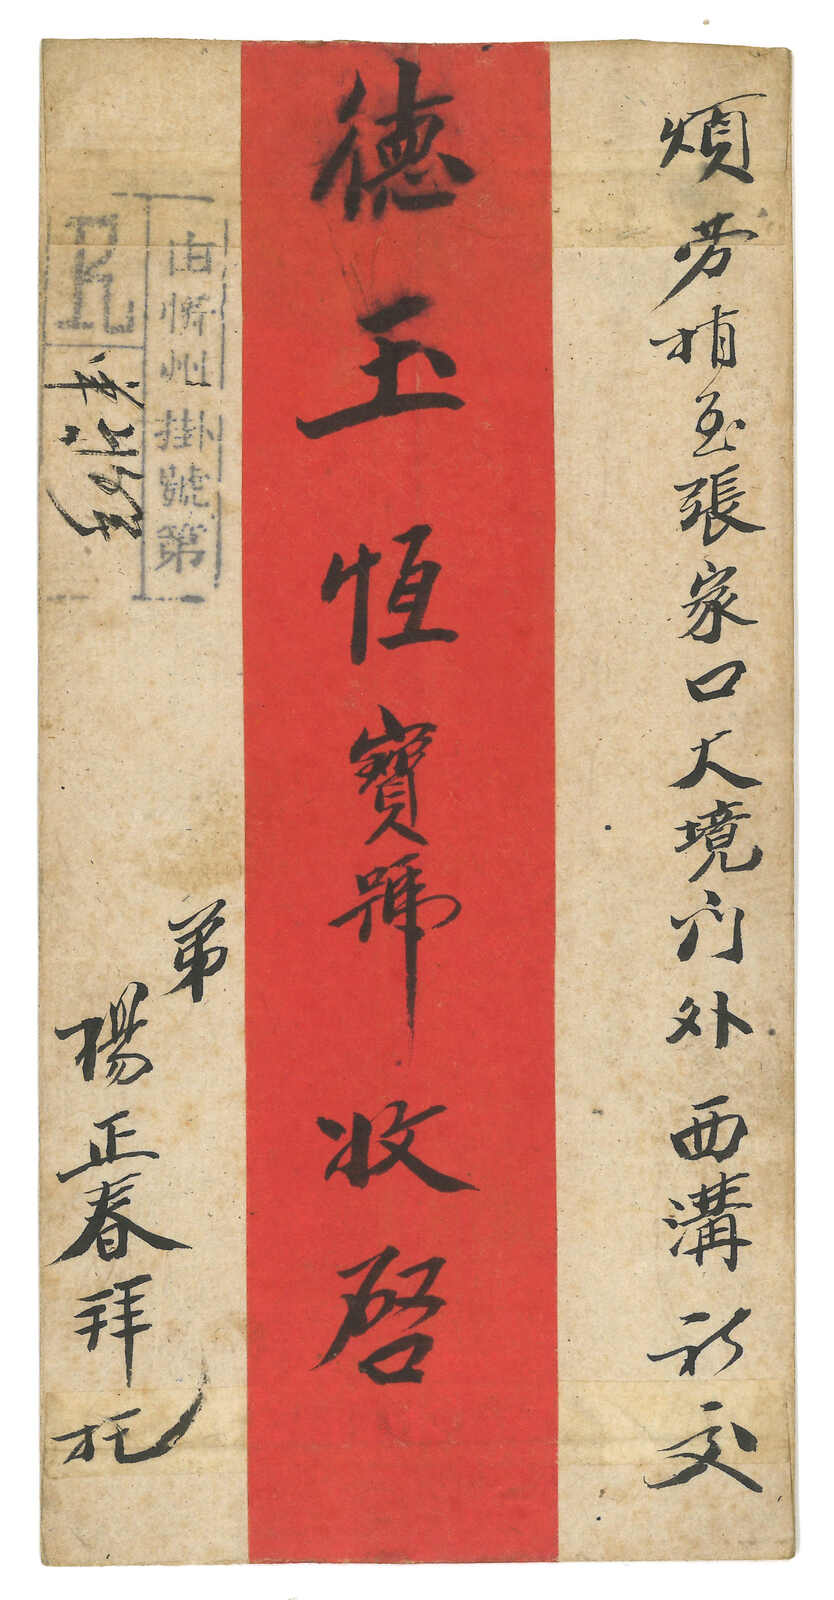 煩劳捎至張家口大境门外西溝祈交
德玉恒寳號收啓
弟
楊正春拜托
由忻州掛號第
R